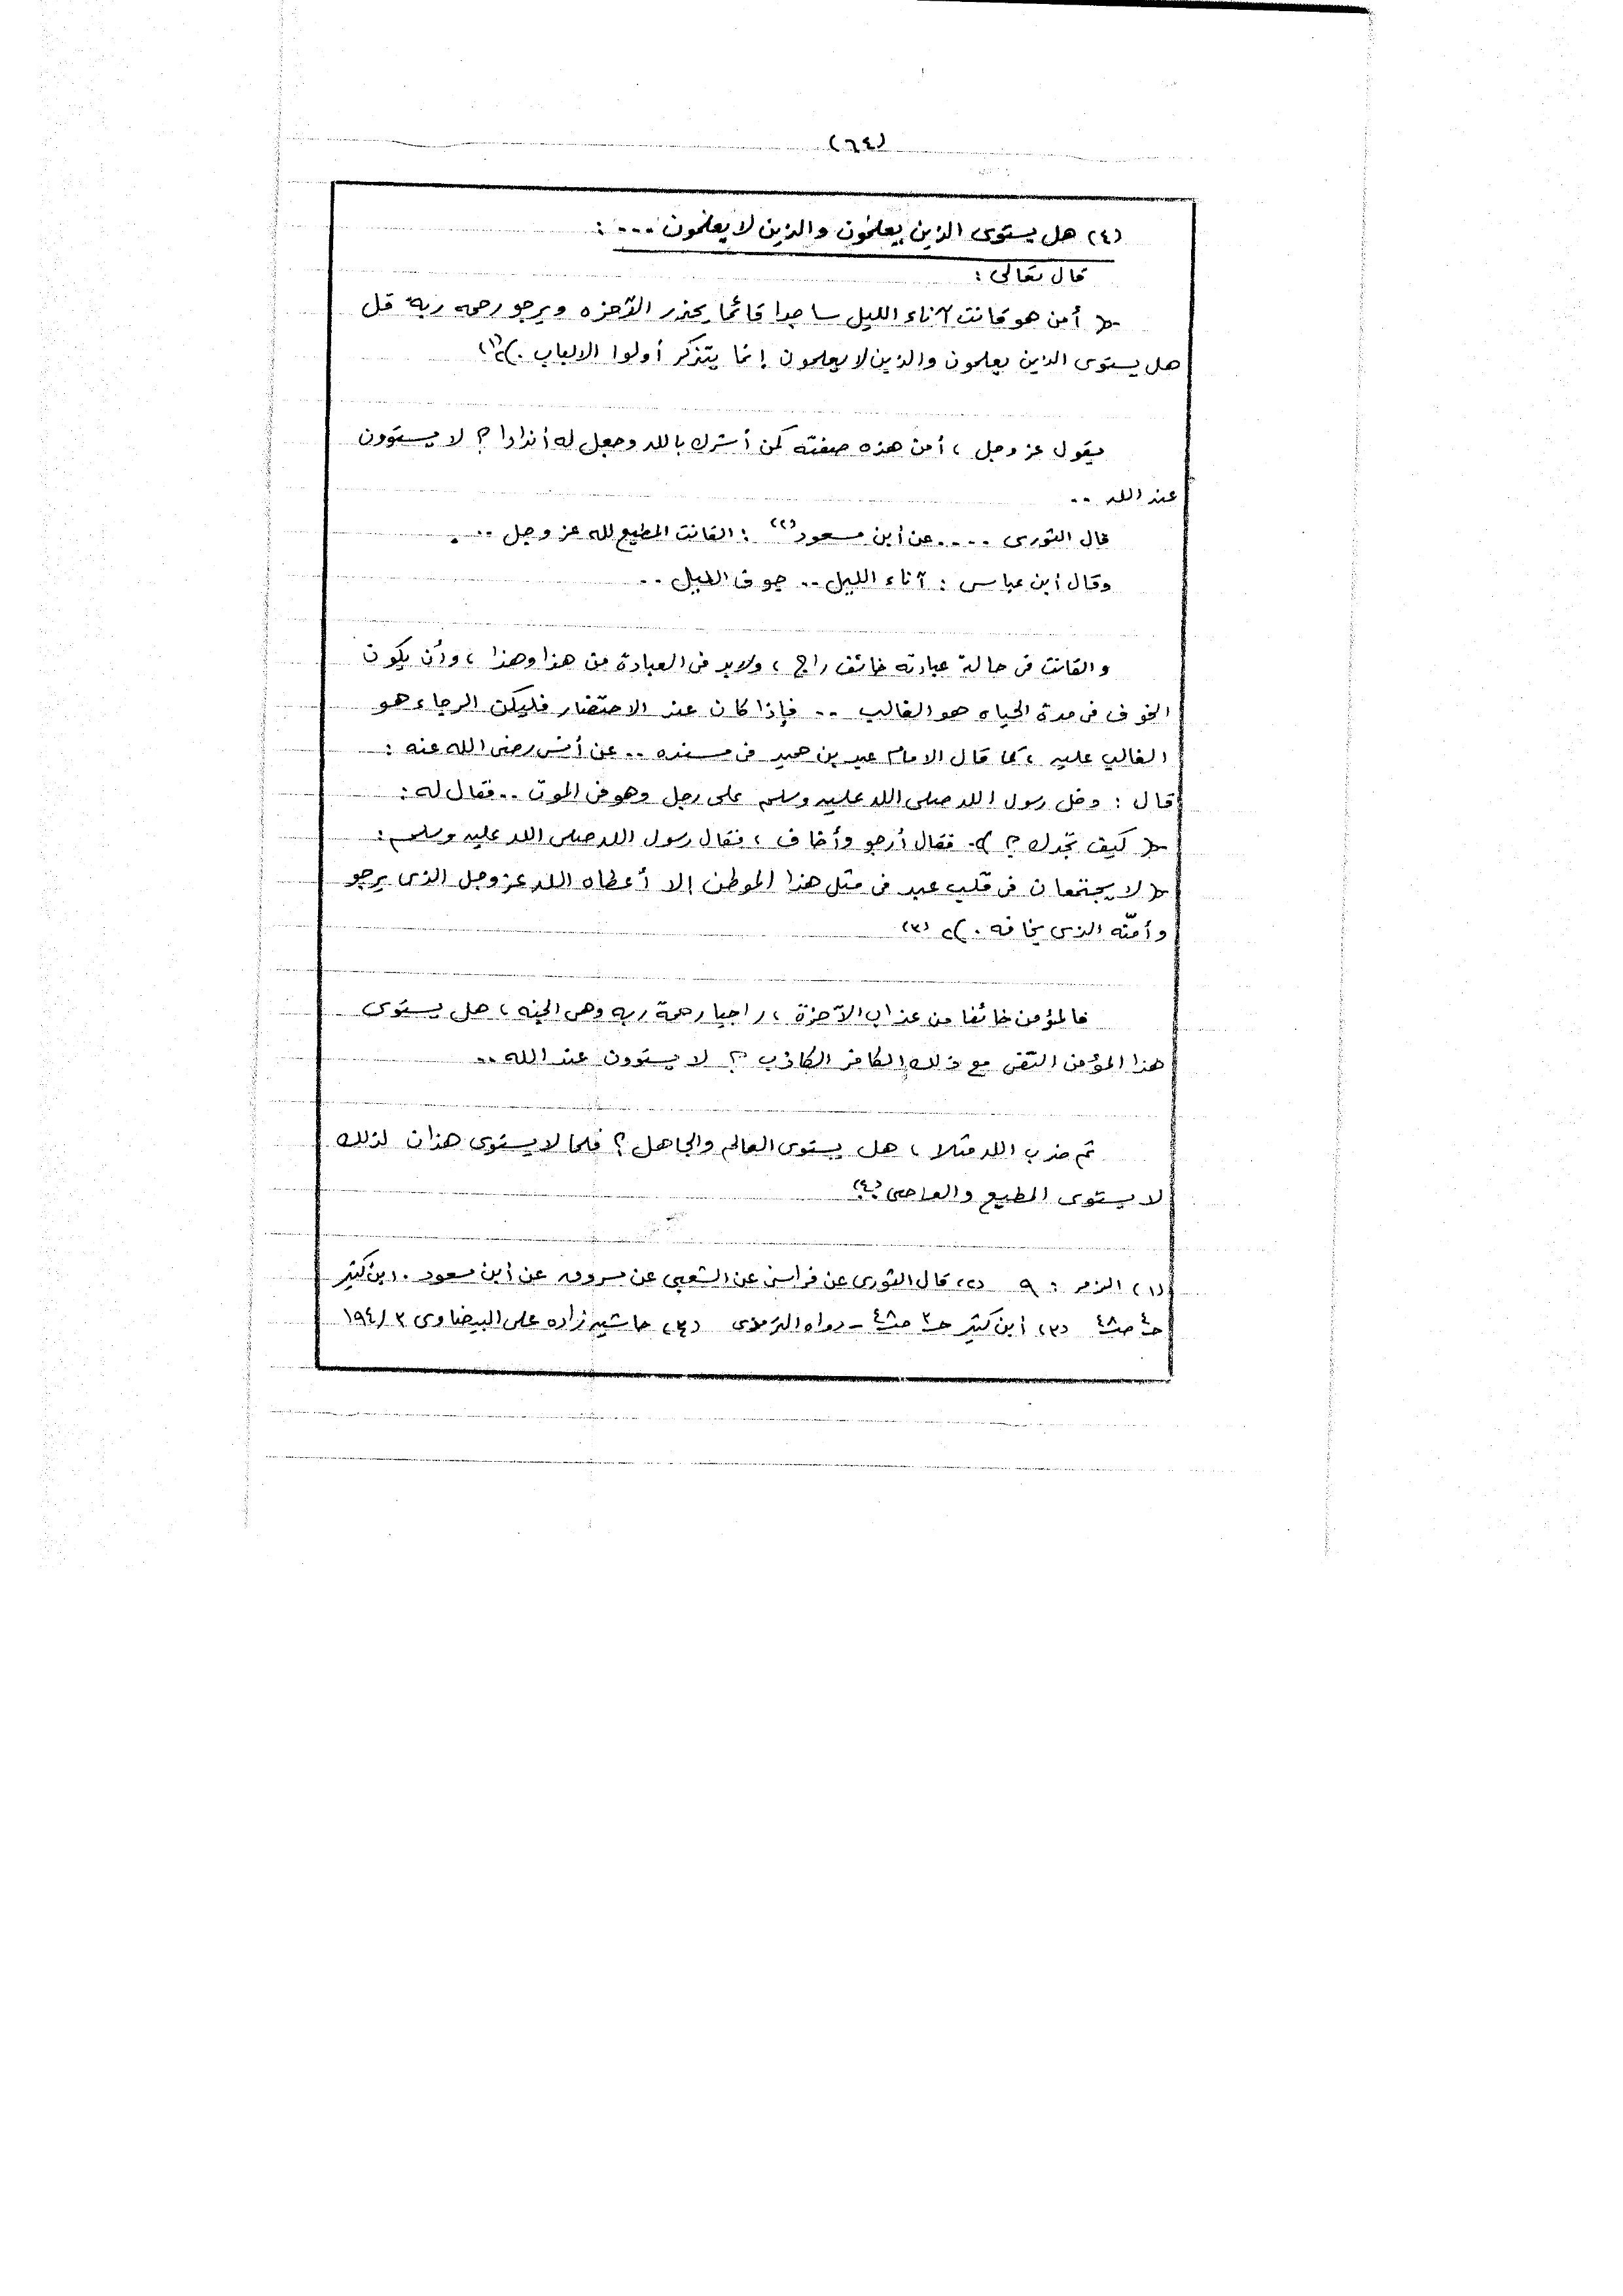 (٦٤)
(٤) هل يستوى الذين يعلمون والذين لا يعلمون ---- :
قال تعالى :
« أمن هو قانت آناء الليل ساجدا قائما يحذر الآخره ويرجو رحمه ربه قل
هل يستوى الذين يعلمون والذين لا يعلمون إنما يتذكر أولوا الالباب . » (١)
يقول عز وجل ، أمن هذه صفته كمن أشرك بالله وجعل له أندادا ؟ لا يستوون
عند الله ..
قال الثورى .... عن أبن مسعود (٢) : القانت المطيع لله عز وجل ...
وقال أبن عباس : آناء الليل .. جوف الليل ..
والقانت فى حالة عبادته خائف راج ، ولابد فى العبادة من هذا وهذا ، وأن يكون
الخوف فى مدة الحياه هو الغالب .. فإذا كان عند الاحتضار فليكن الرجاء هو
الغالب عليه ، كما قال الامام عبد بن حميد فى مسنده .. عن أنس رضى الله عنه :
قال : دخل رسول الله صلى الله عليه وسلم على رجل وهو فى الموت .. فقال له :
« كيف تجدك ؟ » . فقال أرجو وأخاف ، فقال رسول الله صلى الله عليه وسلم :
« لا يجتمعان فى قلب عبد فى مثل هذا الموطن إلا أعطاه الله عز وجل الذى يرجو
وأمنّه الذى يخافه . » (٣)
فالمؤمن خائفا من عذاب الآخرة ، راجيا رحمة ربه وهى الجنه ، هل يستوى
هذا المؤمن التقى مع ذلك الكافر الكاذب ؟ لا يستوون عند الله ..
ثم ضرب الله مثلا ، هل يستوى العالم والجاهل ؟ فلما لا يستوى هذان لذلك
لا يستوى المطيع والعاصى (٤)
(١) الزمر : ٩ (٢) قال الثورى عن فراس عن الشعبى عن مسروق عن أبن مسعود . ابن كثير
حـ٤ صـ٤٨ (٣) أبن كثير حـ٣ صـ٤٨ - رواه الترمذى (٤) حاشيه زاده على البيضاوى ٣ / ١٩٤